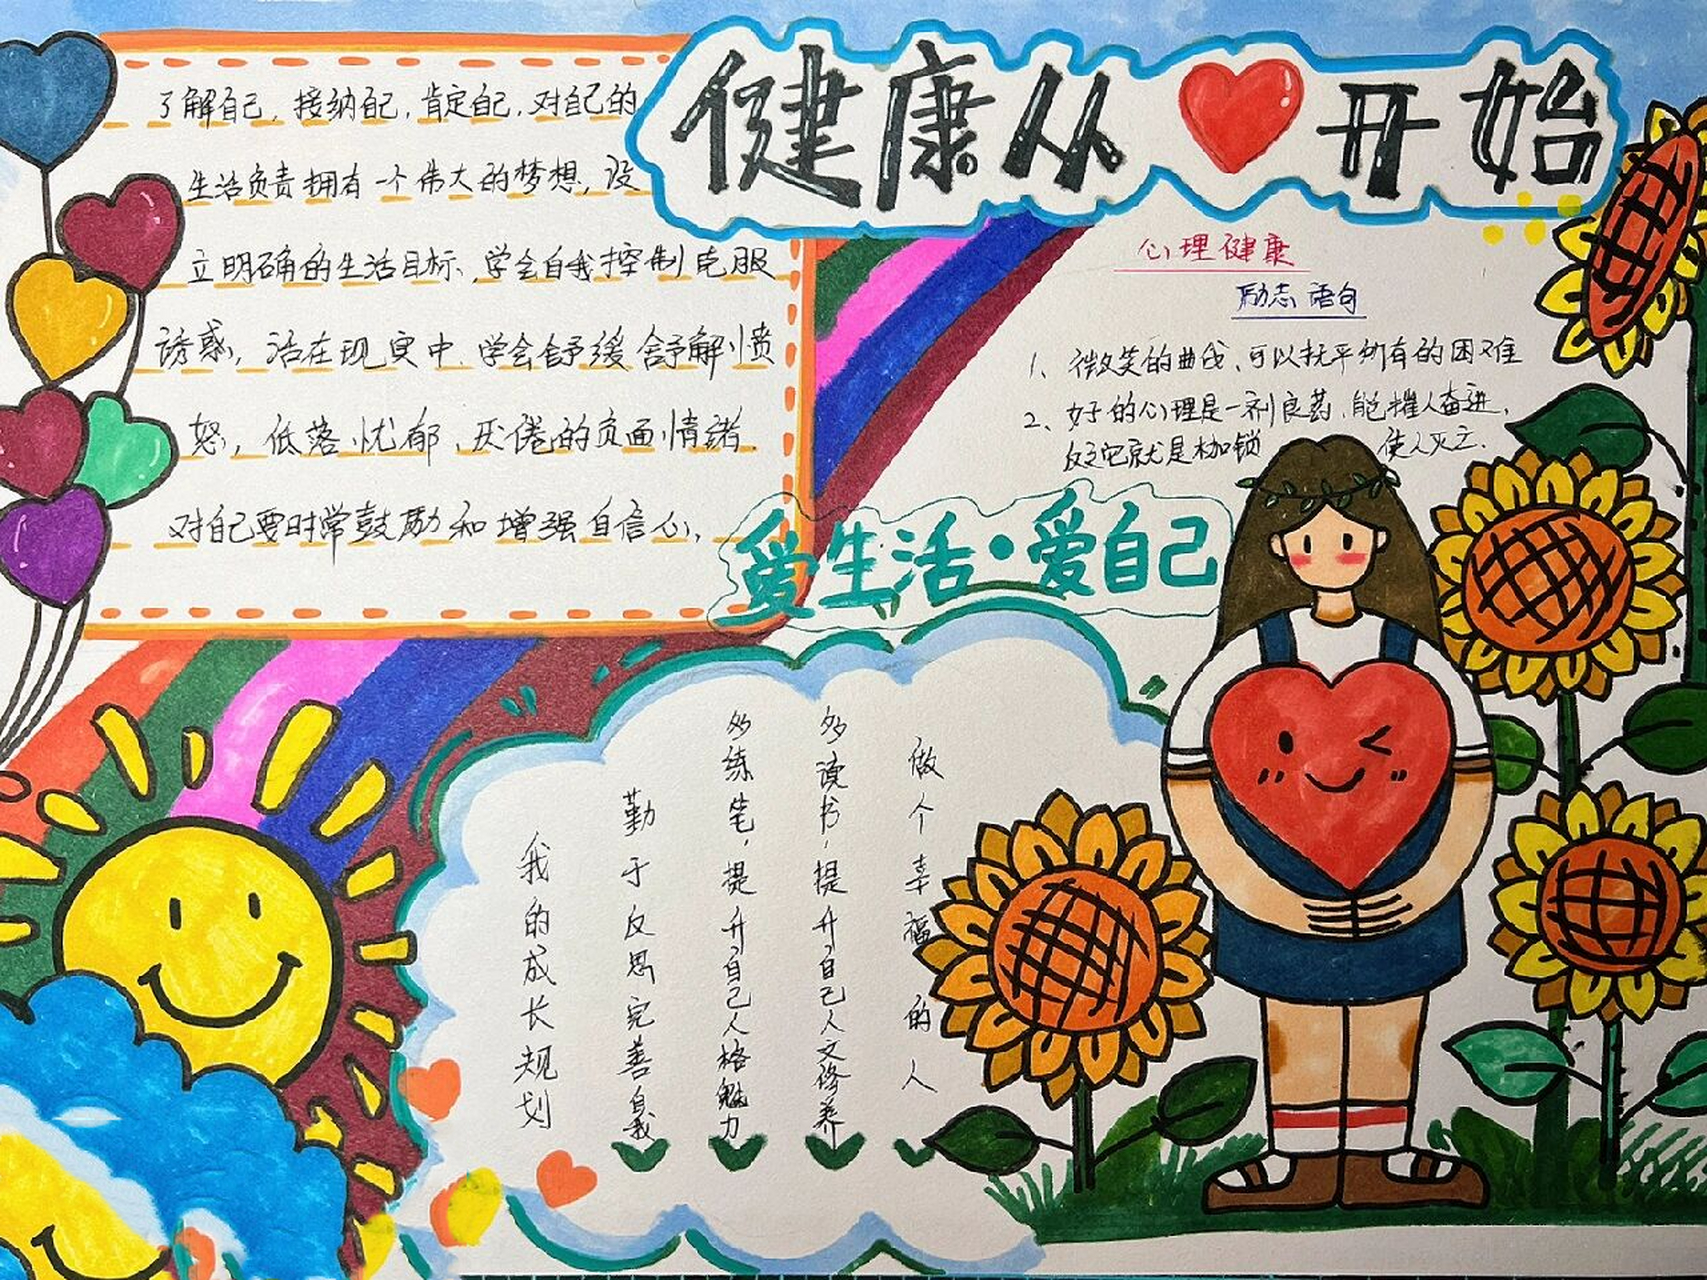 健康从❤开始
了解自己，接纳自己，肯定自己，对自己的
生活负责拥有一个伟大的梦想，设
立明确的生活目标、学会自我控制克服
诱惑，活在现实中、学会舒缓舒解愤
怒，低落、忧郁、厌倦的负面情绪．
对自己要时常鼓励和增强自信心，
心理健康
励志语句
1、微笑的曲线、可以抚平所有的困难
2、好的心理是一剂良药、能催人奋进，
反之它就是枷锁 使人灭亡．
爱生活·爱自己
我的成长规划
勤于反思完善自我
多练笔，提升自己人格魅力
多读书，提升自己人文修养
做个幸福的人